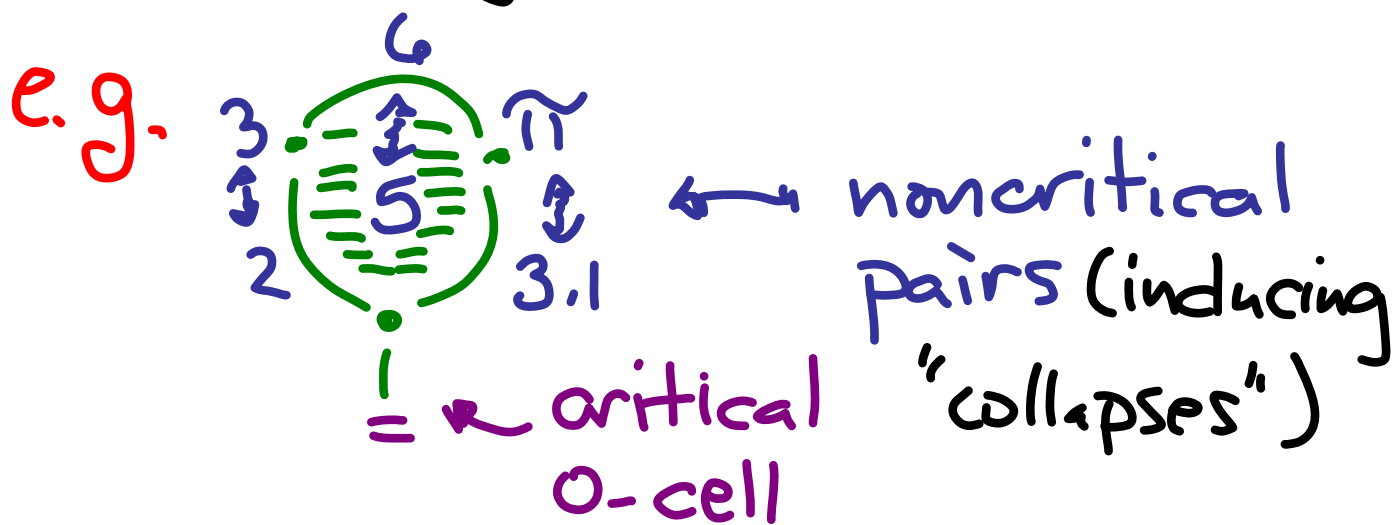 6
e.g. 3 π
5 ↔ noncritical
2 3.1 pairs (inducing
"collapses")
1 ← critical
0-cell